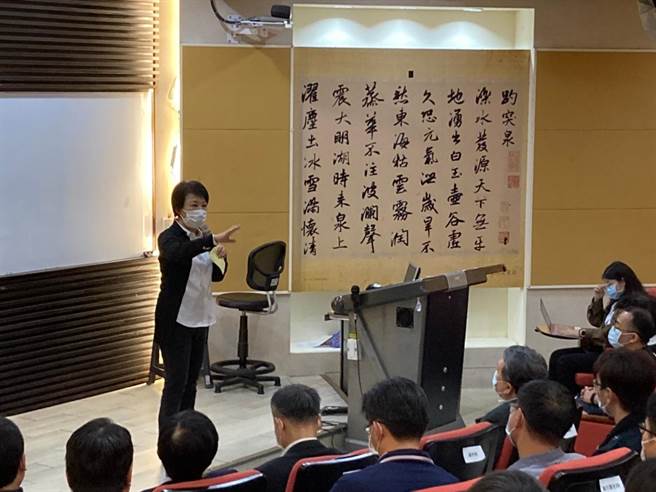 趵突泉
濼水發源天下無平
地湧出白玉壺谷虛
久恐元氣洩歲旱不
愁東海枯雲霧潤
蒸華不注波瀾聲
震大明湖時來泉上
濯塵土冰雪滿懷清